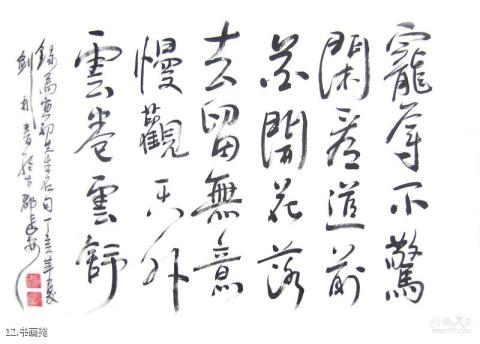 寵辱不驚
閑看庭前
花開花落
去留無意
慢觀天外
雲卷雲舒
錄馬寅初先生名句丁亥年夏
書於古都長安
12.书画苑